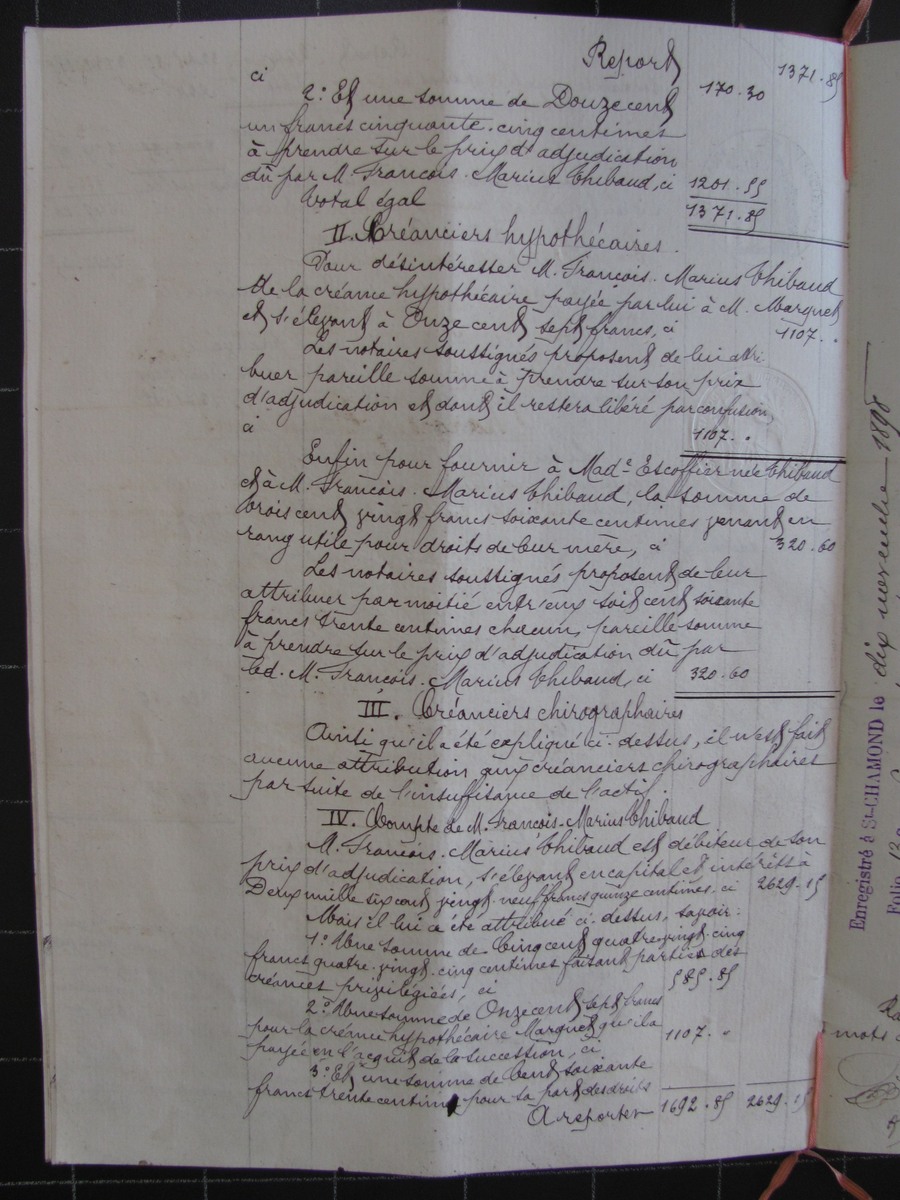 Report 1371.85
ci 170.30
2° Et une somme de Douze cent
un francs cinquante-cinq centimes
à prendre sur le prix d'adjudication
dû par M. François-Marius Thibaud, ci 1201.55
Total égal 1371.85
II. Créanciers hypothécaires.
Pour désintéresser M. François-Marius Thibaud
de la créance hypothécaire payée par lui à M. Marguet
et s'élevant à Onze cent sept francs, ci 1107. "
Les notaires soussignés proposent de lui attri
buer pareille somme à prendre sur son prix
d'adjudication et dont il restera libéré par confusion,
ci 1107. "
Enfin pour fournir à Made Escoffier née Thibaud
et à M. François-Marius Thibaud, la somme de
trois cent vingt francs soixante centimes venant en
rang utile pour droits de leur mère, ci 320.60
Les notaires soussignés proposent de leur
attribuer par moitié entr'eux soit cent soixante
francs trente centimes chacun, pareille somme
à prendre sur le prix d'adjudication dû par
led. M. François-Marius Thibaud, ci 320.60
III. Créanciers chirographaires
Ainsi qu'il a été expliqué ci-dessus, il n'est fait
aucune attribution aux créanciers chirographaires
par suite de l'insuffisance de l'actif.
IV. Compte de M. François-Marius Thibaud
M. François-Marius Thibaud est débiteur de son
prix d'adjudication, s'élevant en capital et intérêts à
Deux mille six cent vingt neuf francs quinze centimes, ci 2629.15
Mais il lui a été attribué ci-dessus, savoir:
1° Une somme de Cinq cent quatre-vingt-cinq
francs quatre-vingt-cinq centimes faisant partie des
créances privilégiées, ci 585.85
2° Une somme de Onze cent sept francs
pour la créance hypothécaire Marguet qu'il a
payée en l'acquit de la succession, ci 1107. "
3° Et une somme de Cent soixante
francs trente centimes pour sa part des droits
A reporter 1692.85 2629.15
Enregistré à St-CHAMOND le dix novembre 1898
Folio
mots